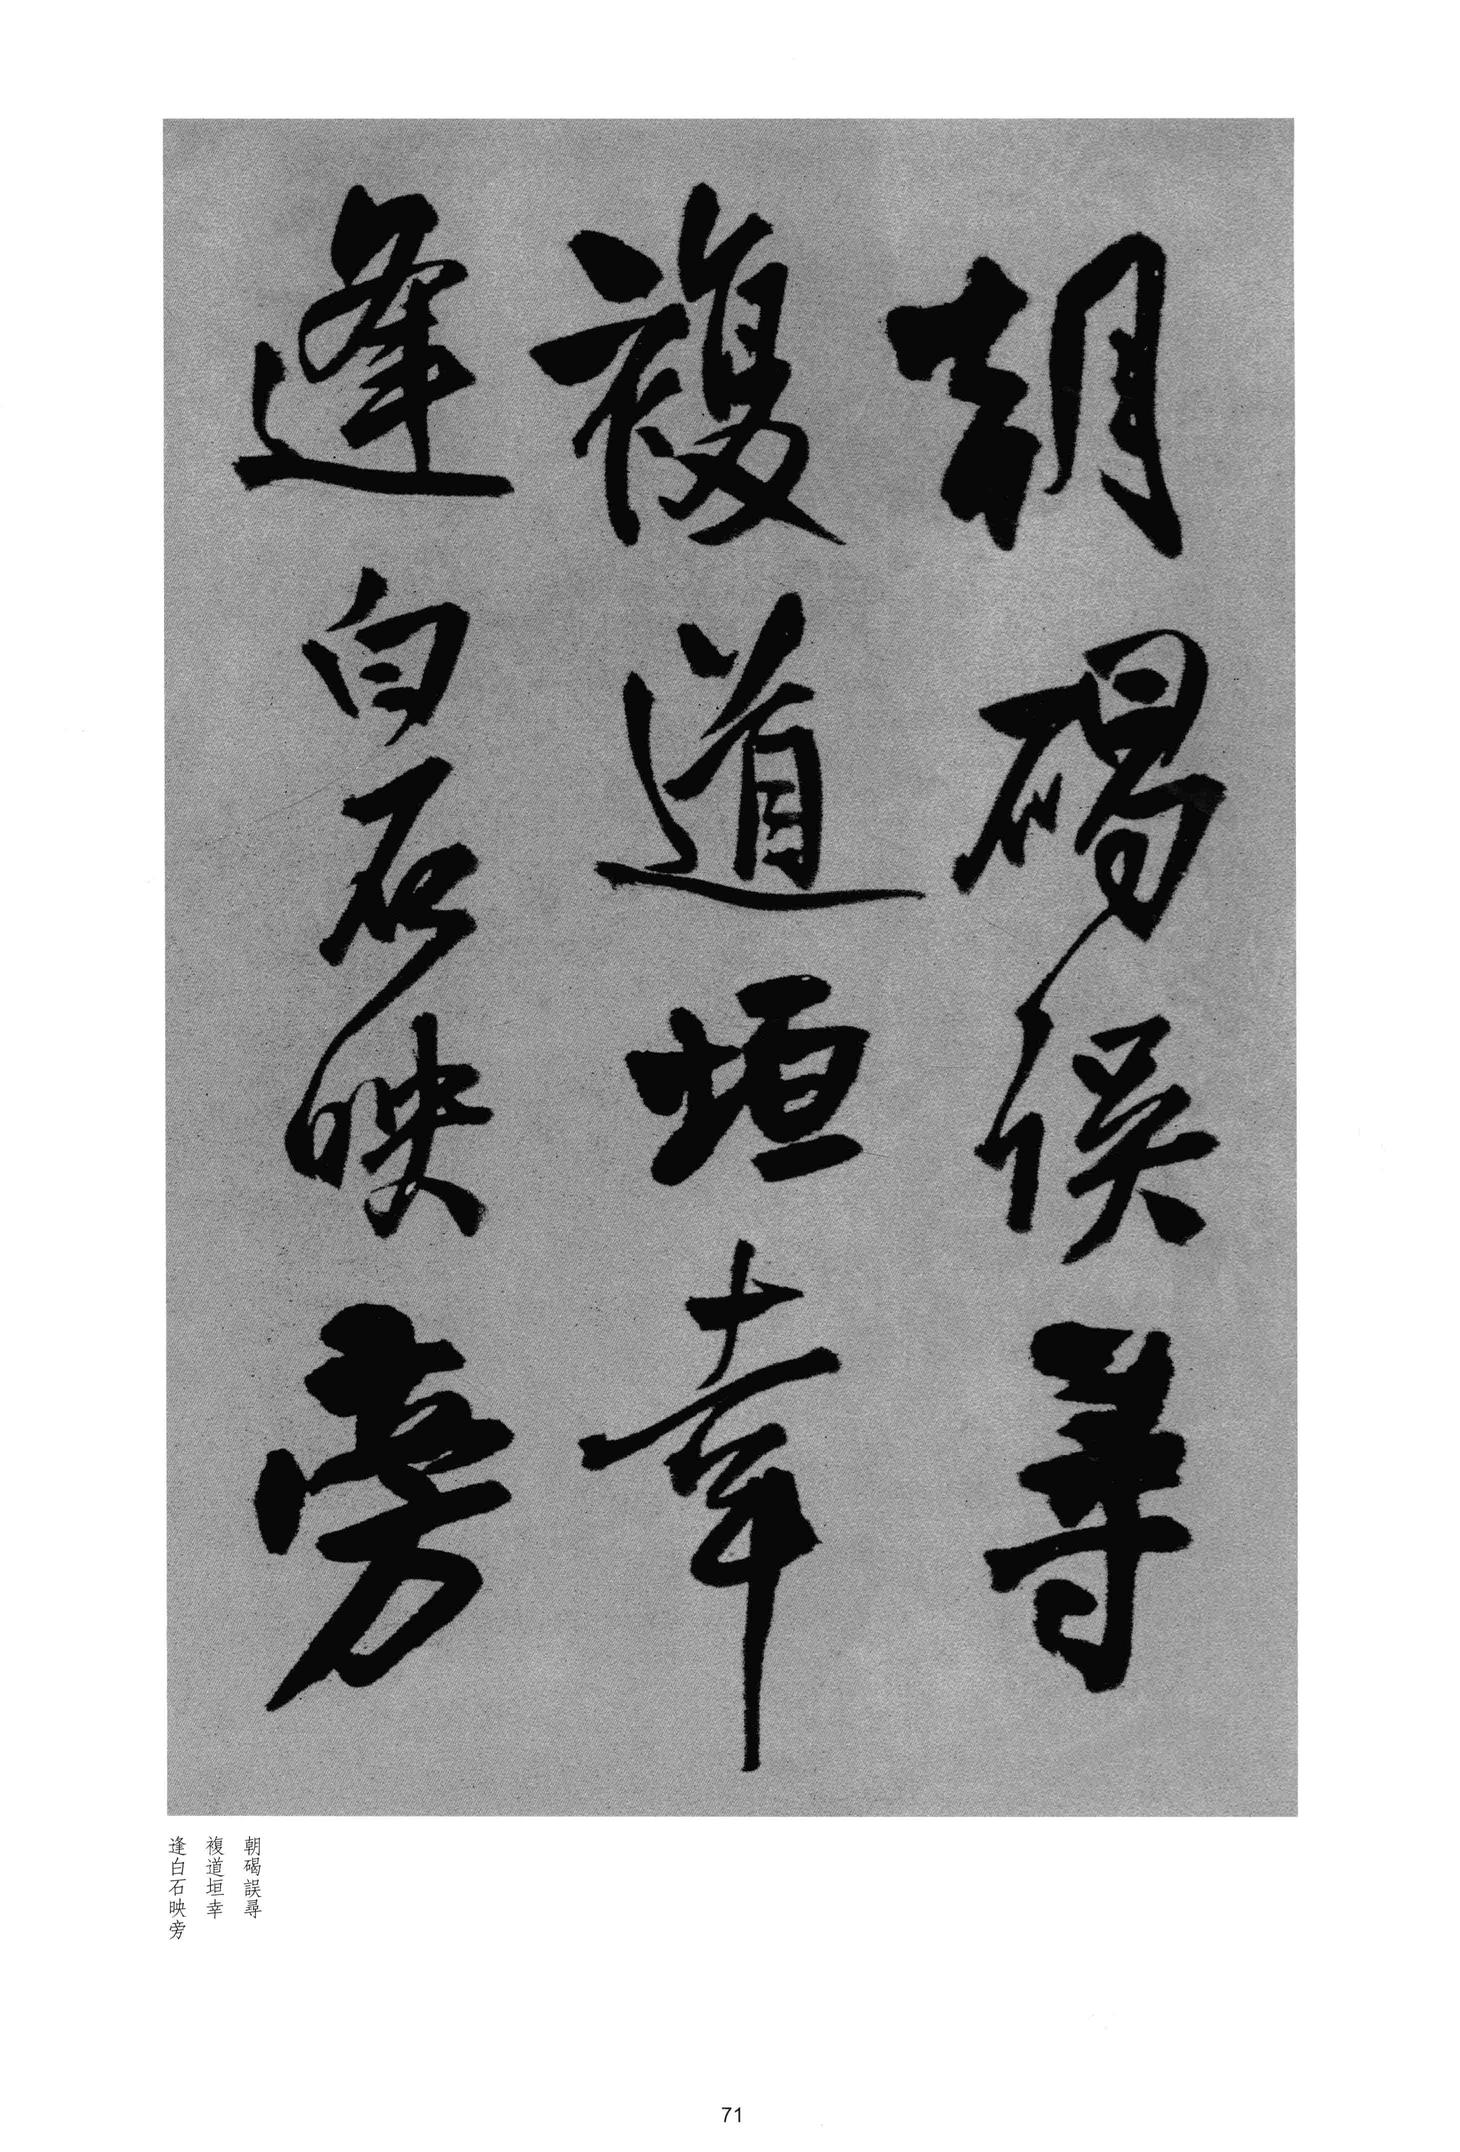 朝碣誤尋
複道垣幸
逢白石映旁
朝碣誤尋
複道垣幸
逢白石映旁
71